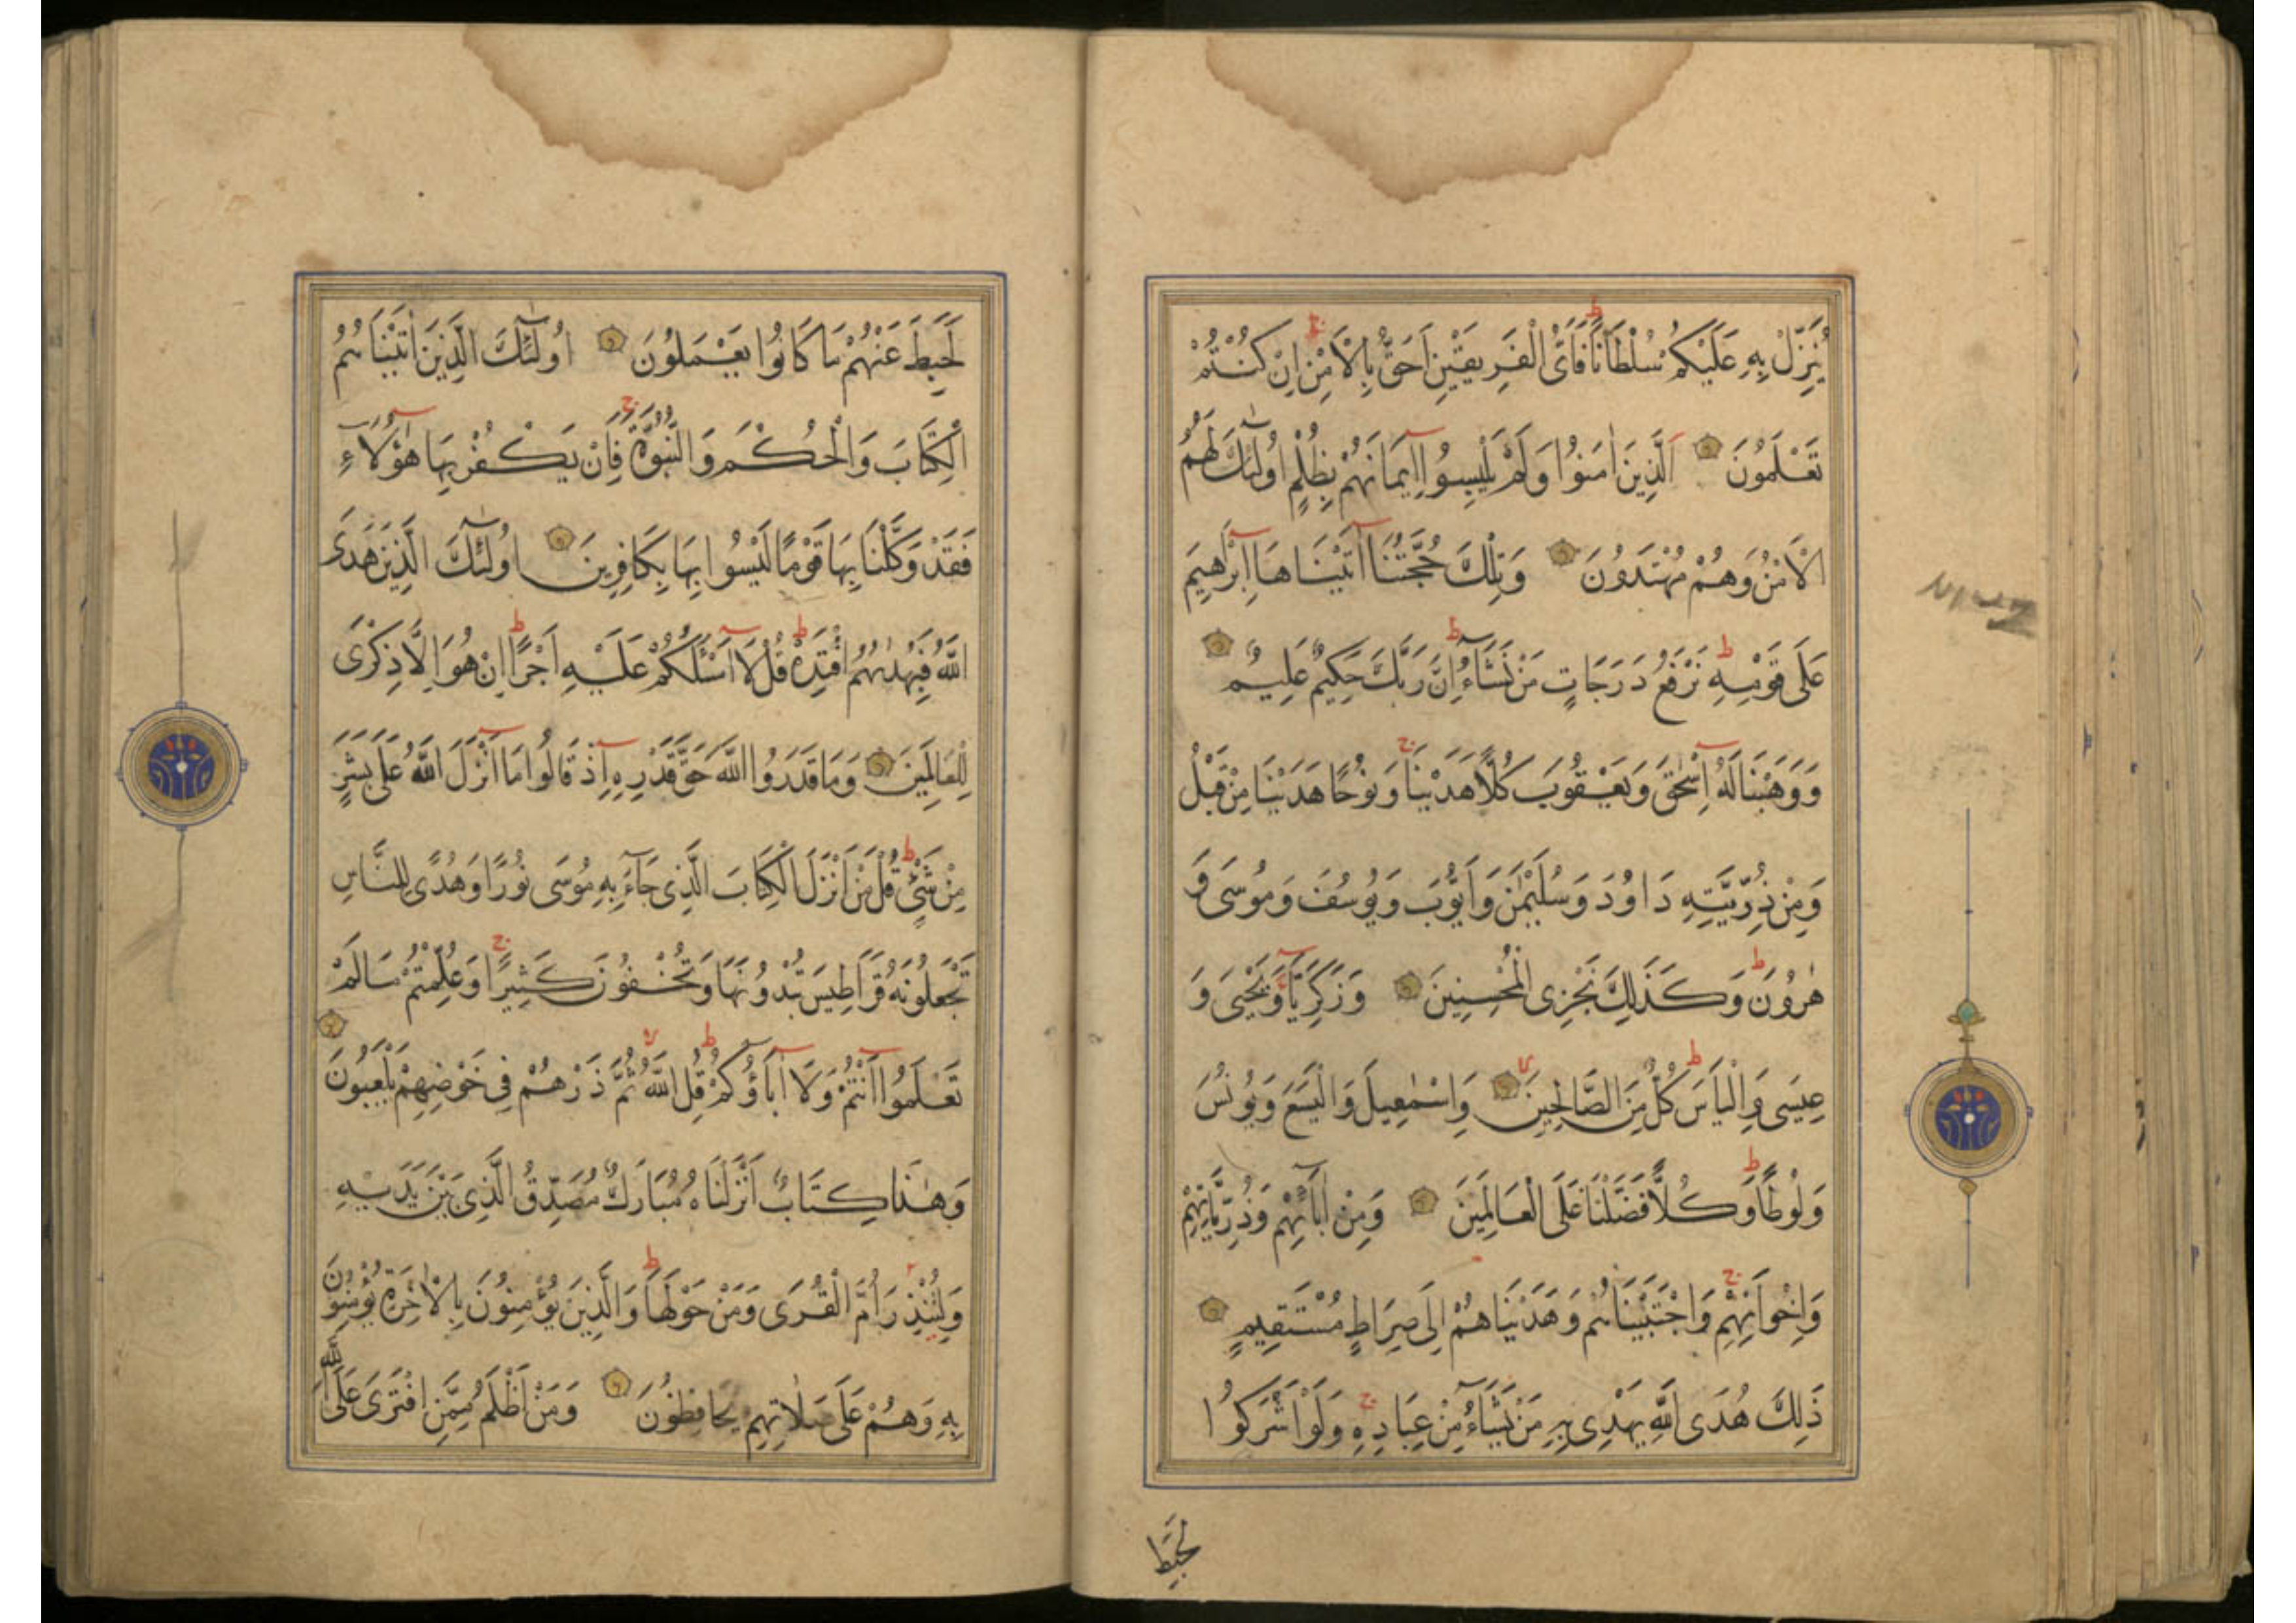 يُنَزِّلْ بِهِ عَلَيْكُمْ سُلْطَانًا فَاَىُّ الْفَرِيقَيْنِ اَحَقُّ بِالْاَمْنِ اِنْ كُنْتُمْ
تَعْلَمُونَ اَلَّذِينَ اٰمَنُوا وَلَمْ يَلْبِسُوا اِيمَانَهُمْ بِظُلْمٍ اُولٰئِكَ لَهُمُ
الْاَمْنُ وَهُمْ مُهْتَدُونَ وَتِلْكَ حُجَّتُنَا اٰتَيْنَاهَا اِبْرٰهِيمَ
عَلَى قَوْمِهِ نَرْفَعُ دَرَجَاتٍ مَنْ نَشَاءُ اِنَّ رَبَّكَ حَكِيمٌ عَلِيمٌ
وَوَهَبْنَا لَهُ اِسْحٰقَ وَيَعْقُوبَ كُلًّا هَدَيْنَا وَنُوحًا هَدَيْنَا مِنْ قَبْلُ
وَمِنْ ذُرِّيَّتِهِ دَاوُدَ وَسُلَيْمٰنَ وَاَيُّوبَ وَيُوسُفَ وَمُوسَى وَ
هٰرُونَ وَكَذَلِكَ نَجْزِى الْمُحْسِنِينَ وَزَكَرِيَّا وَيَحْيَى وَ
عِيسَى وَاِلْيَاسَ كُلٌّ مِنَ الصَّالِحِينَ وَاِسْمٰعِيلَ وَالْيَسَعَ وَيُونُسَ
وَلُوطًا وَكُلًّا فَضَّلْنَا عَلَى الْعَالَمِينَ وَمِنْ اٰبَائِهِمْ وَذُرِّيَّاتِهِمْ
وَاِخْوَانِهِمْ وَاجْتَبَيْنَاهُمْ وَهَدَيْنَاهُمْ اِلَى صِرَاطٍ مُسْتَقِيمٍ
ذَلِكَ هُدَى اللّٰهِ يَهْدِى بِهِ مَنْ يَشَاءُ مِنْ عِبَادِهِ وَلَوْ اَشْرَكُوا
لَحَبِطَ
لَحَبِطَ عَنْهُمْ مَا كَانُوا يَعْمَلُونَ اُولٰئِكَ الَّذِينَ اٰتَيْنَاهُمُ
الْكِتَابَ وَالْحُكْمَ وَالنُّبُوَّةَ فَاِنْ يَكْفُرْ بِهَا هٰؤُلَاءِ
فَقَدْ وَكَّلْنَا بِهَا قَوْمًا لَيْسُوا بِهَا بِكَافِرِينَ اُولٰئِكَ الَّذِينَ هَدَى
اللّٰهُ فَبِهُدٰيهُمُ اقْتَدِهْ قُلْ لَا اَسْئَلُكُمْ عَلَيْهِ اَجْرًا اِنْ هُوَ اِلَّا ذِكْرَى
لِلْعَالَمِينَ وَمَا قَدَرُوا اللّٰهَ حَقَّ قَدْرِهِ اِذْ قَالُوا مَا اَنْزَلَ اللّٰهُ عَلَى بَشَرٍ
مِنْ شَىْءٍ قُلْ مَنْ اَنْزَلَ الْكِتَابَ الَّذِى جَاءَ بِهِ مُوسَى نُورًا وَهُدًى لِلنَّاسِ
تَجْعَلُونَهُ قَرَاطِيسَ تُبْدُونَهَا وَتُخْفُونَ كَثِيرًا وَعُلِّمْتُمْ مَا لَمْ
تَعْلَمُوا اَنْتُمْ وَلَا اٰبَاؤُكُمْ قُلِ اللّٰهُ ثُمَّ ذَرْهُمْ فِى خَوْضِهِمْ يَلْعَبُونَ
وَهٰذَا كِتَابٌ اَنْزَلْنَاهُ مُبَارَكٌ مُصَدِّقُ الَّذِى بَيْنَ يَدَيْهِ
وَلِتُنْذِرَ اُمَّ الْقُرَى وَمَنْ حَوْلَهَا وَالَّذِينَ يُؤْمِنُونَ بِالْاٰخِرَةِ يُؤْمِنُونَ
بِهِ وَهُمْ عَلَى صَلَاتِهِمْ يُحَافِظُونَ وَمَنْ اَظْلَمُ مِمَّنِ افْتَرَى عَلَى اللّٰهِ